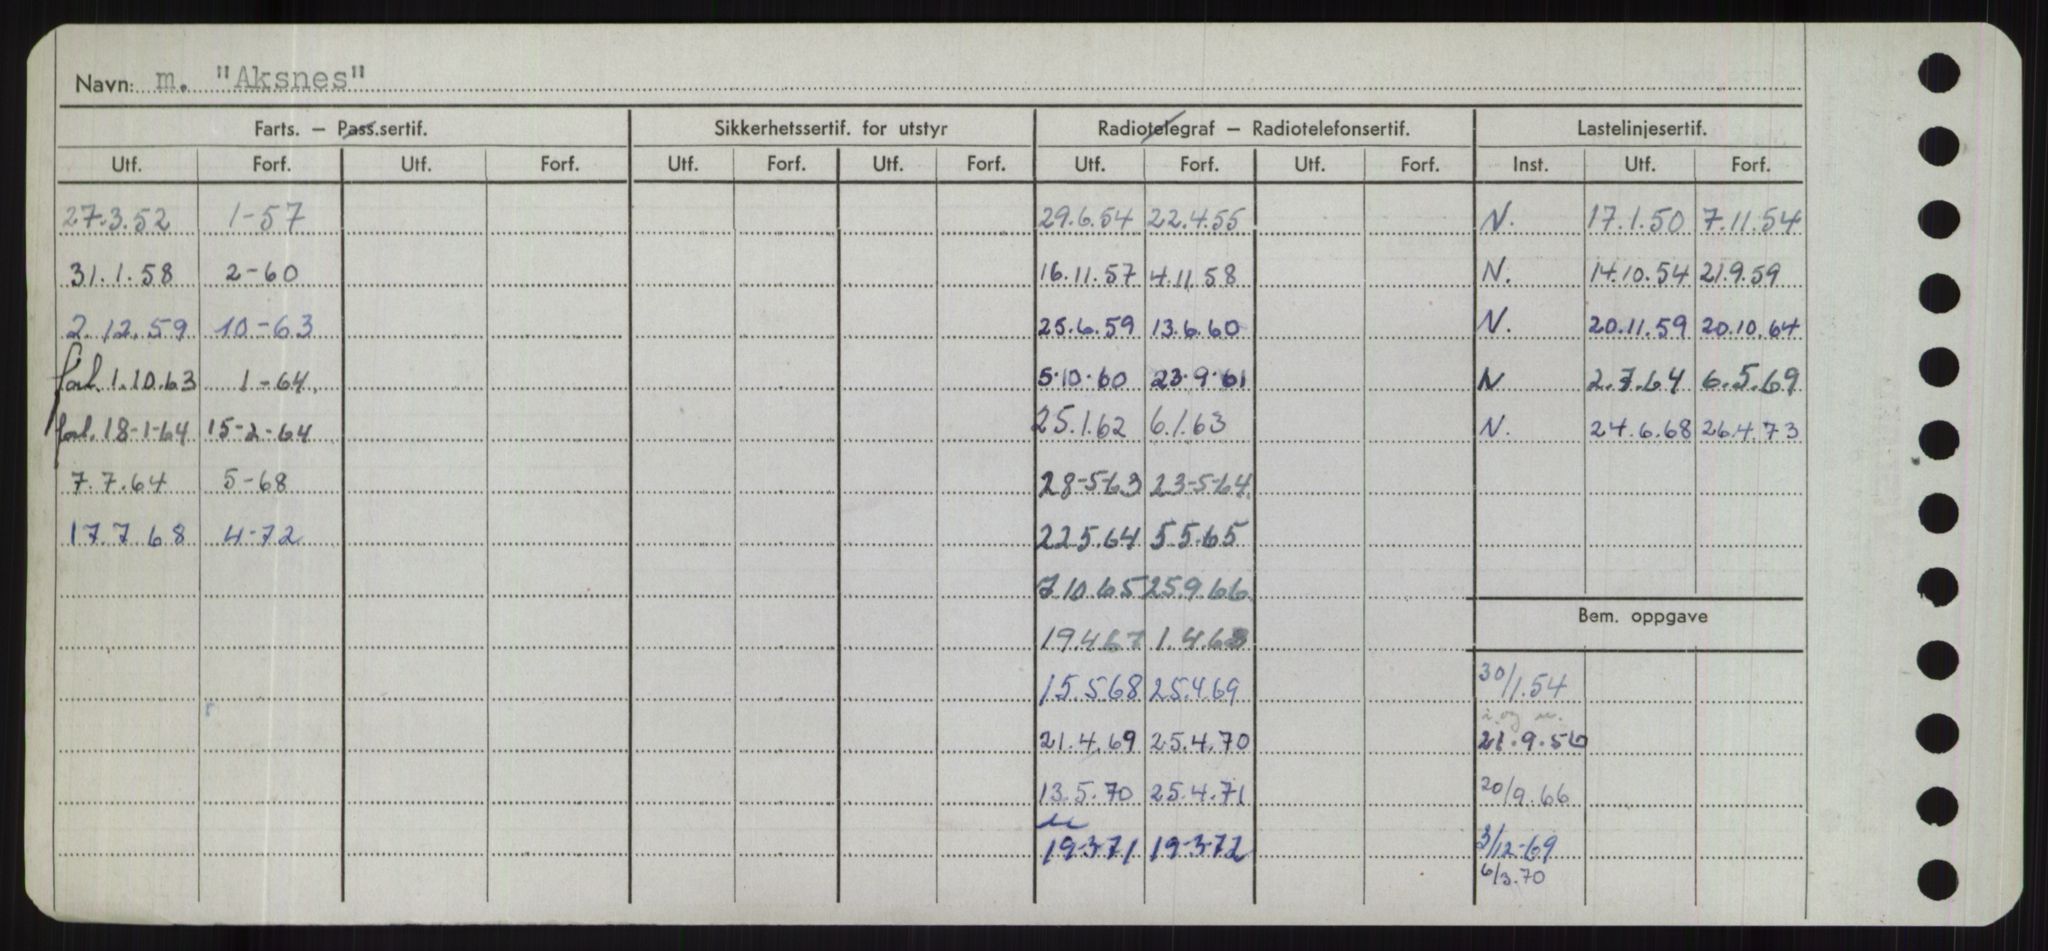 Navn: m. "Aksnes"
Farts. – Pass.sertif. Sikkerhetssertif. for utstyr Radiotelegraf – Radiotelefonsertif. Lastelinjesertif.
Utf. Forf. Utf. Forf. Utf. Forf. Utf. Forf. Utf. Forf. Utf. Forf. Inst. Utf. Forf.
27.3.52 1-57 29.6.54 22.4.55 N. 17.1.50 7.11.54
31.1.58 2-60 16.11.57 4.11.58 N. 14.10.54 21.9.59
2.12.59 10-63 25.6.59 13.6.60 N. 20.11.59 20.10.64
forl. 1.10.63 1-64. 5.10.60 23.9.61 N 2.7.64 6.5.69
forl. 18-1-64 15-2-64 25.1.62 6.1.63 N. 24.6.68 26.4.73
7.7.64 5-68 28-5-63 23-5-64
17.7.68 4-72 22.5.64 5.5.65
7.10.65 25.9.66
Bem. oppgave
19.4.67 1.4.68
15.5.68 25.4.69 30/1.54
21.4.69 25.4.70 21.9.56
13.5.70 25.4.71 20/9.66
19-3-71 19-3-72 3/12-69
6/3.70